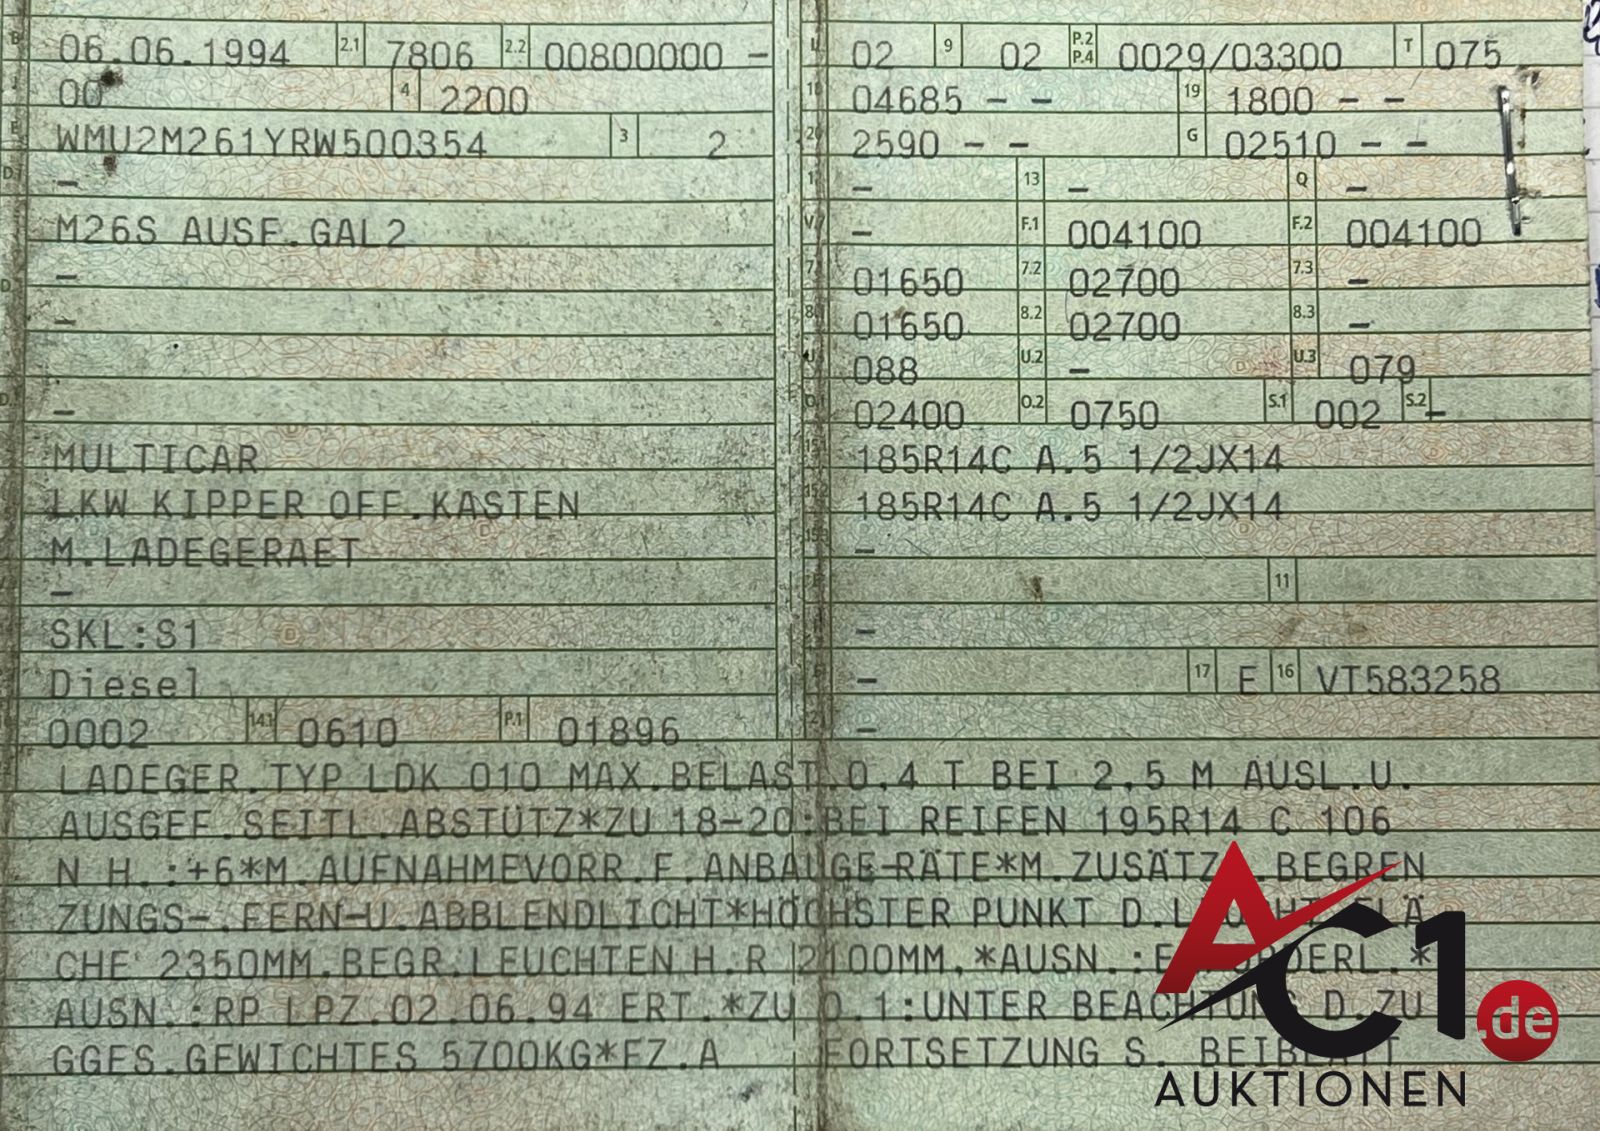 B 06.06.1994 2.1 7806 2.2 00800000 -
J 00 4 2200
E WMU2M261YRW500354 3 2
D. -
M26S AUSF.GAL2
-
D. -
D. -
MULTICAR
LKW KIPPER OFF.KASTEN
M.LADEGERAET
-
SKL:S1
Diesel
0002 14.1 0610 P.1 01896
L 02 9 02 P.2 P.4 0029/03300 T 075
18 04685 - - 19 1800 - -
20 2590 - - G 02510 - -
- 13 - Q -
V.7 - F.1 004100 F.2 004100
7.1 01650 7.2 02700 7.3 -
8.1 01650 8.2 02700 8.3 -
U.1 088 U.2 - U.3 079
O.1 02400 O.2 0750 S.1 002 S.2 -
15.1 185R14C A.5 1/2JX14
15.2 185R14C A.5 1/2JX14
15.3 -
11
-
- 17 E 16 VT583258
21 -
LADEGER.TYP LDK 010 MAX.BELAST.0,4 T BEI 2,5 M AUSL.U.
AUSGEF.SEITL.ABSTÜTZ*ZU 18-20:BEI REIFEN 195R14 C 106
N H.:+6*M.AUFNAHMEVORR.F.ANBAUGE-RÄTE*M.ZUSÄTZ .BEGREN
ZUNGS-.FERN-U.ABBLENDLICHT*HÖCHSTER PUNKT D.LEUCHT.FLÄ
CHE 2350MM.BEGR.LEUCHTEN H.R 2100MM.*AUSN.:E .*
AUSN.:RP LPZ.02.06.94 ERT.*ZU O.1:UNTER BEACHTUNG D.ZU
GGES.GEWICHTES 5700KG*FZ.A FORTSETZUNG S. BEIBLATT
AC1.de
AUKTIONEN